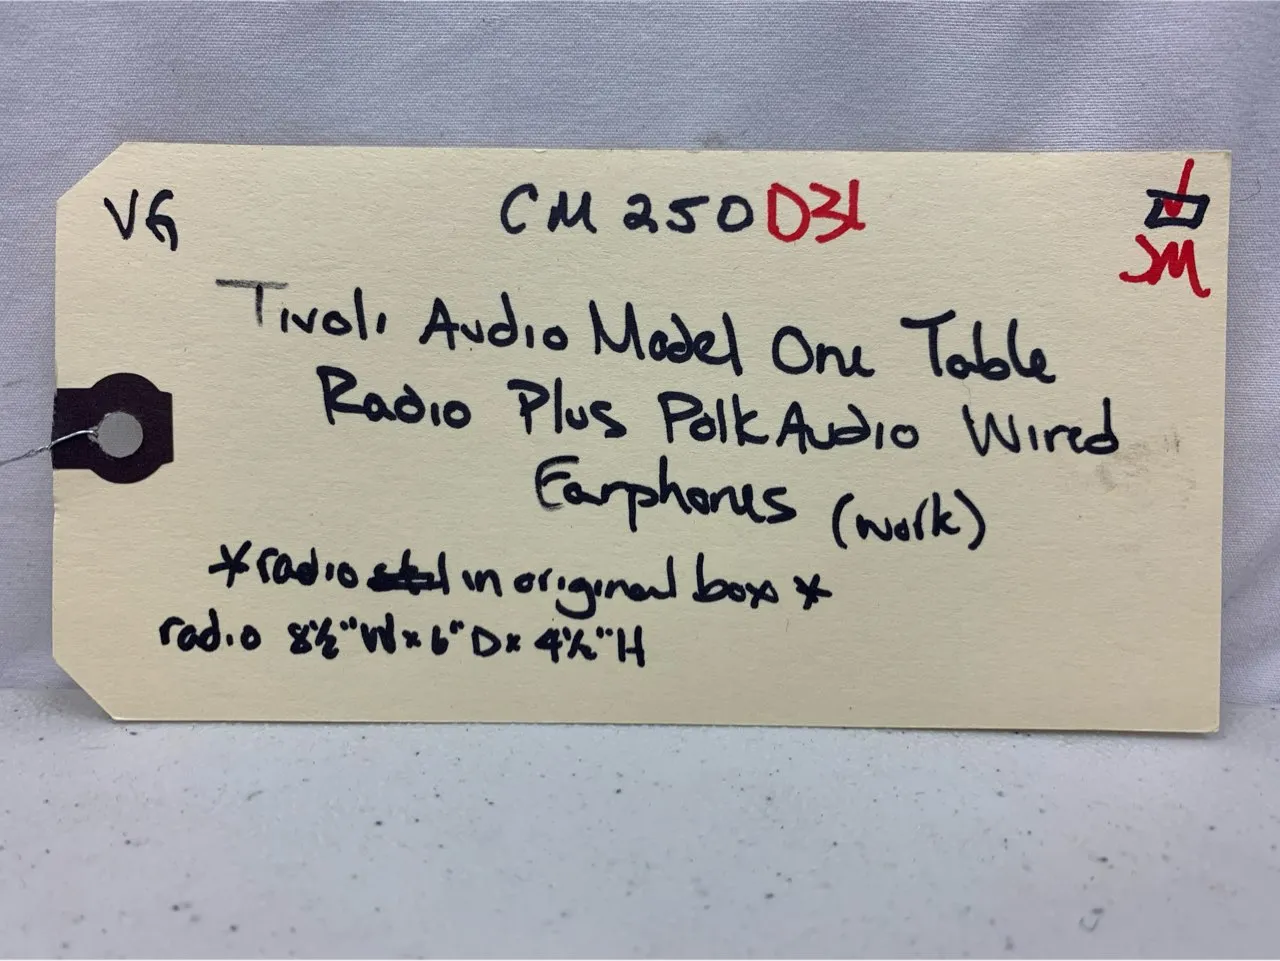 VG
CM250D31
JM
Tivoli Audio Model One Table
Radio Plus Polk Audio Wired
Earphones (work)
*radio in original box*
radio 8½"W x 6"D x 4½"H